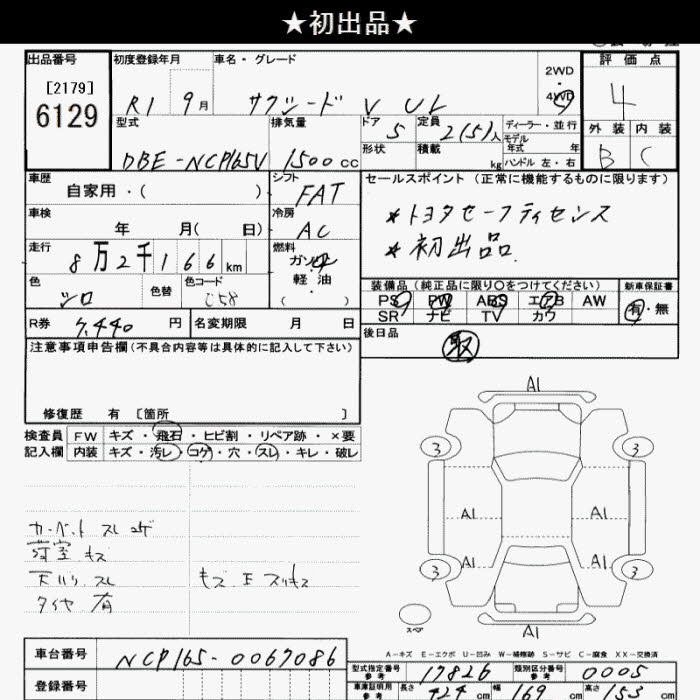 ★初出品★
出品番号
[2179]
6129
初度登録年月
R1 9月
車名・グレード
サクシード V UL
2WD
4WD
評価点
4
外装 内装
B C
型式
DBE-NCP165V
排気量
1500cc
ドア
5
形状
定員
2(5)人
積載
kg
ディーラー・並行
モデル
年式 年
ハンドル 左・右
車歴
自家用・( )
シフト
FAT
車検
年 月( 日)
冷房
AC
走行
8万2千166km
燃料
ガソリン
軽油
( )
色
シロ
色替
色コード
R券
7,440円
名変期限 月 日
セールスポイント(正常に機能するものに限ります)
★トヨタセーフティセンス
★初出品
装備品(純正品に限り○をつけてください)
PS PW ABS エアB AW
SR ナビ TV カワ
新車保証書
有・無
後日品
取
注意事項申告欄(不具合内容等は具体的に記入して下さい)
修復歴 有 [箇所 ]
検査員
記入欄
FW キズ・飛石・ヒビ割・リペア跡・×要
内装 キズ・汚レ・コゲ・穴・スレ・キレ・破レ
カーペット スレ コゲ
荷室 キズ
天ハリ スレ
タイヤ 有
A1
3 3
A1 A1
A1 A1
3 3
スペア
A1
A-キズ E-エクボ U-凹み W-補修跡 S-サビ C-腐食 XX-交換済
車台番号
NCP165-0067086
登録番号
型式指定番号
参考
17826
類別区分番号
参考
0005
車庫証明用
参考
長さ 424cm 幅 169cm 高さ 153cm